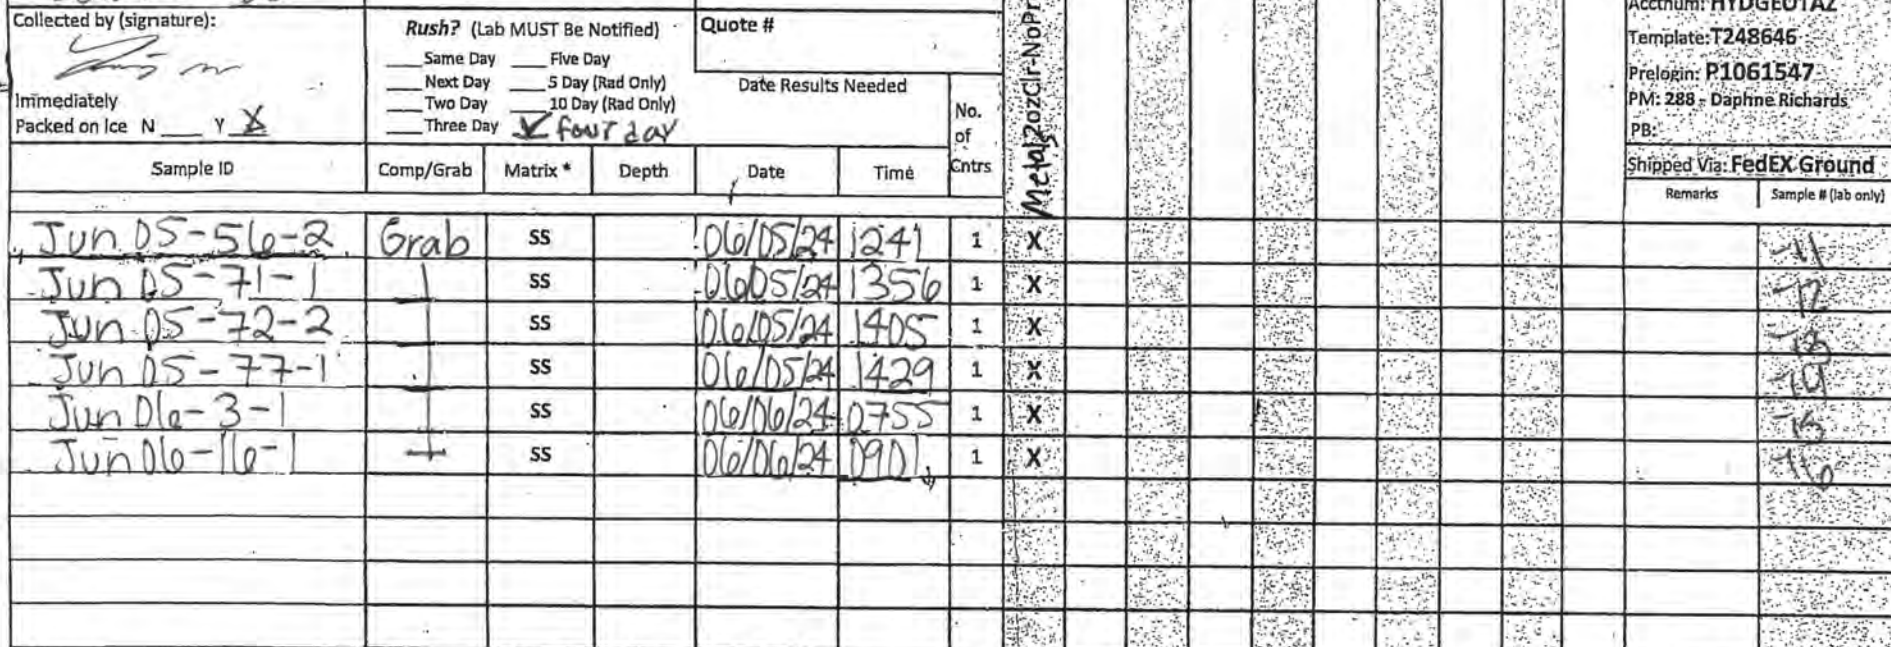 Collected by (signature):
Immediately
Packed on Ice N ___ Y X
Rush? (Lab MUST Be Notified)
___ Same Day ___ Five Day
___ Next Day ___ 5 Day (Rad Only)
___ Two Day ___ 10 Day (Rad Only)
___ Three Day ✓ four day
Quote #
Date Results Needed
No.
of
Cntrs
Metals 2ozClr-NoPr
Acctnum: HYDGEOTAZ
Template:T248646
Prelogin: P1061547
PM: 288 - Daphne Richards
PB:
Shipped Via: FedEX Ground
Sample ID Comp/Grab Matrix * Depth Date Time Remarks Sample # (lab only)
Jun 05-56-2 Grab SS 06/05/24 1241 1 X -11
Jun 05-71-1 SS 06/05/24 1356 1 X -12
Jun 05-72-2 SS 06/05/24 1405 1 X -13
Jun 05-77-1 SS 06/05/24 1429 1 X -14
Jun 06-3-1 SS 06/06/24 0755 1 X -15
Jun 06-16-1 SS 06/06/24 0901 1 X -16